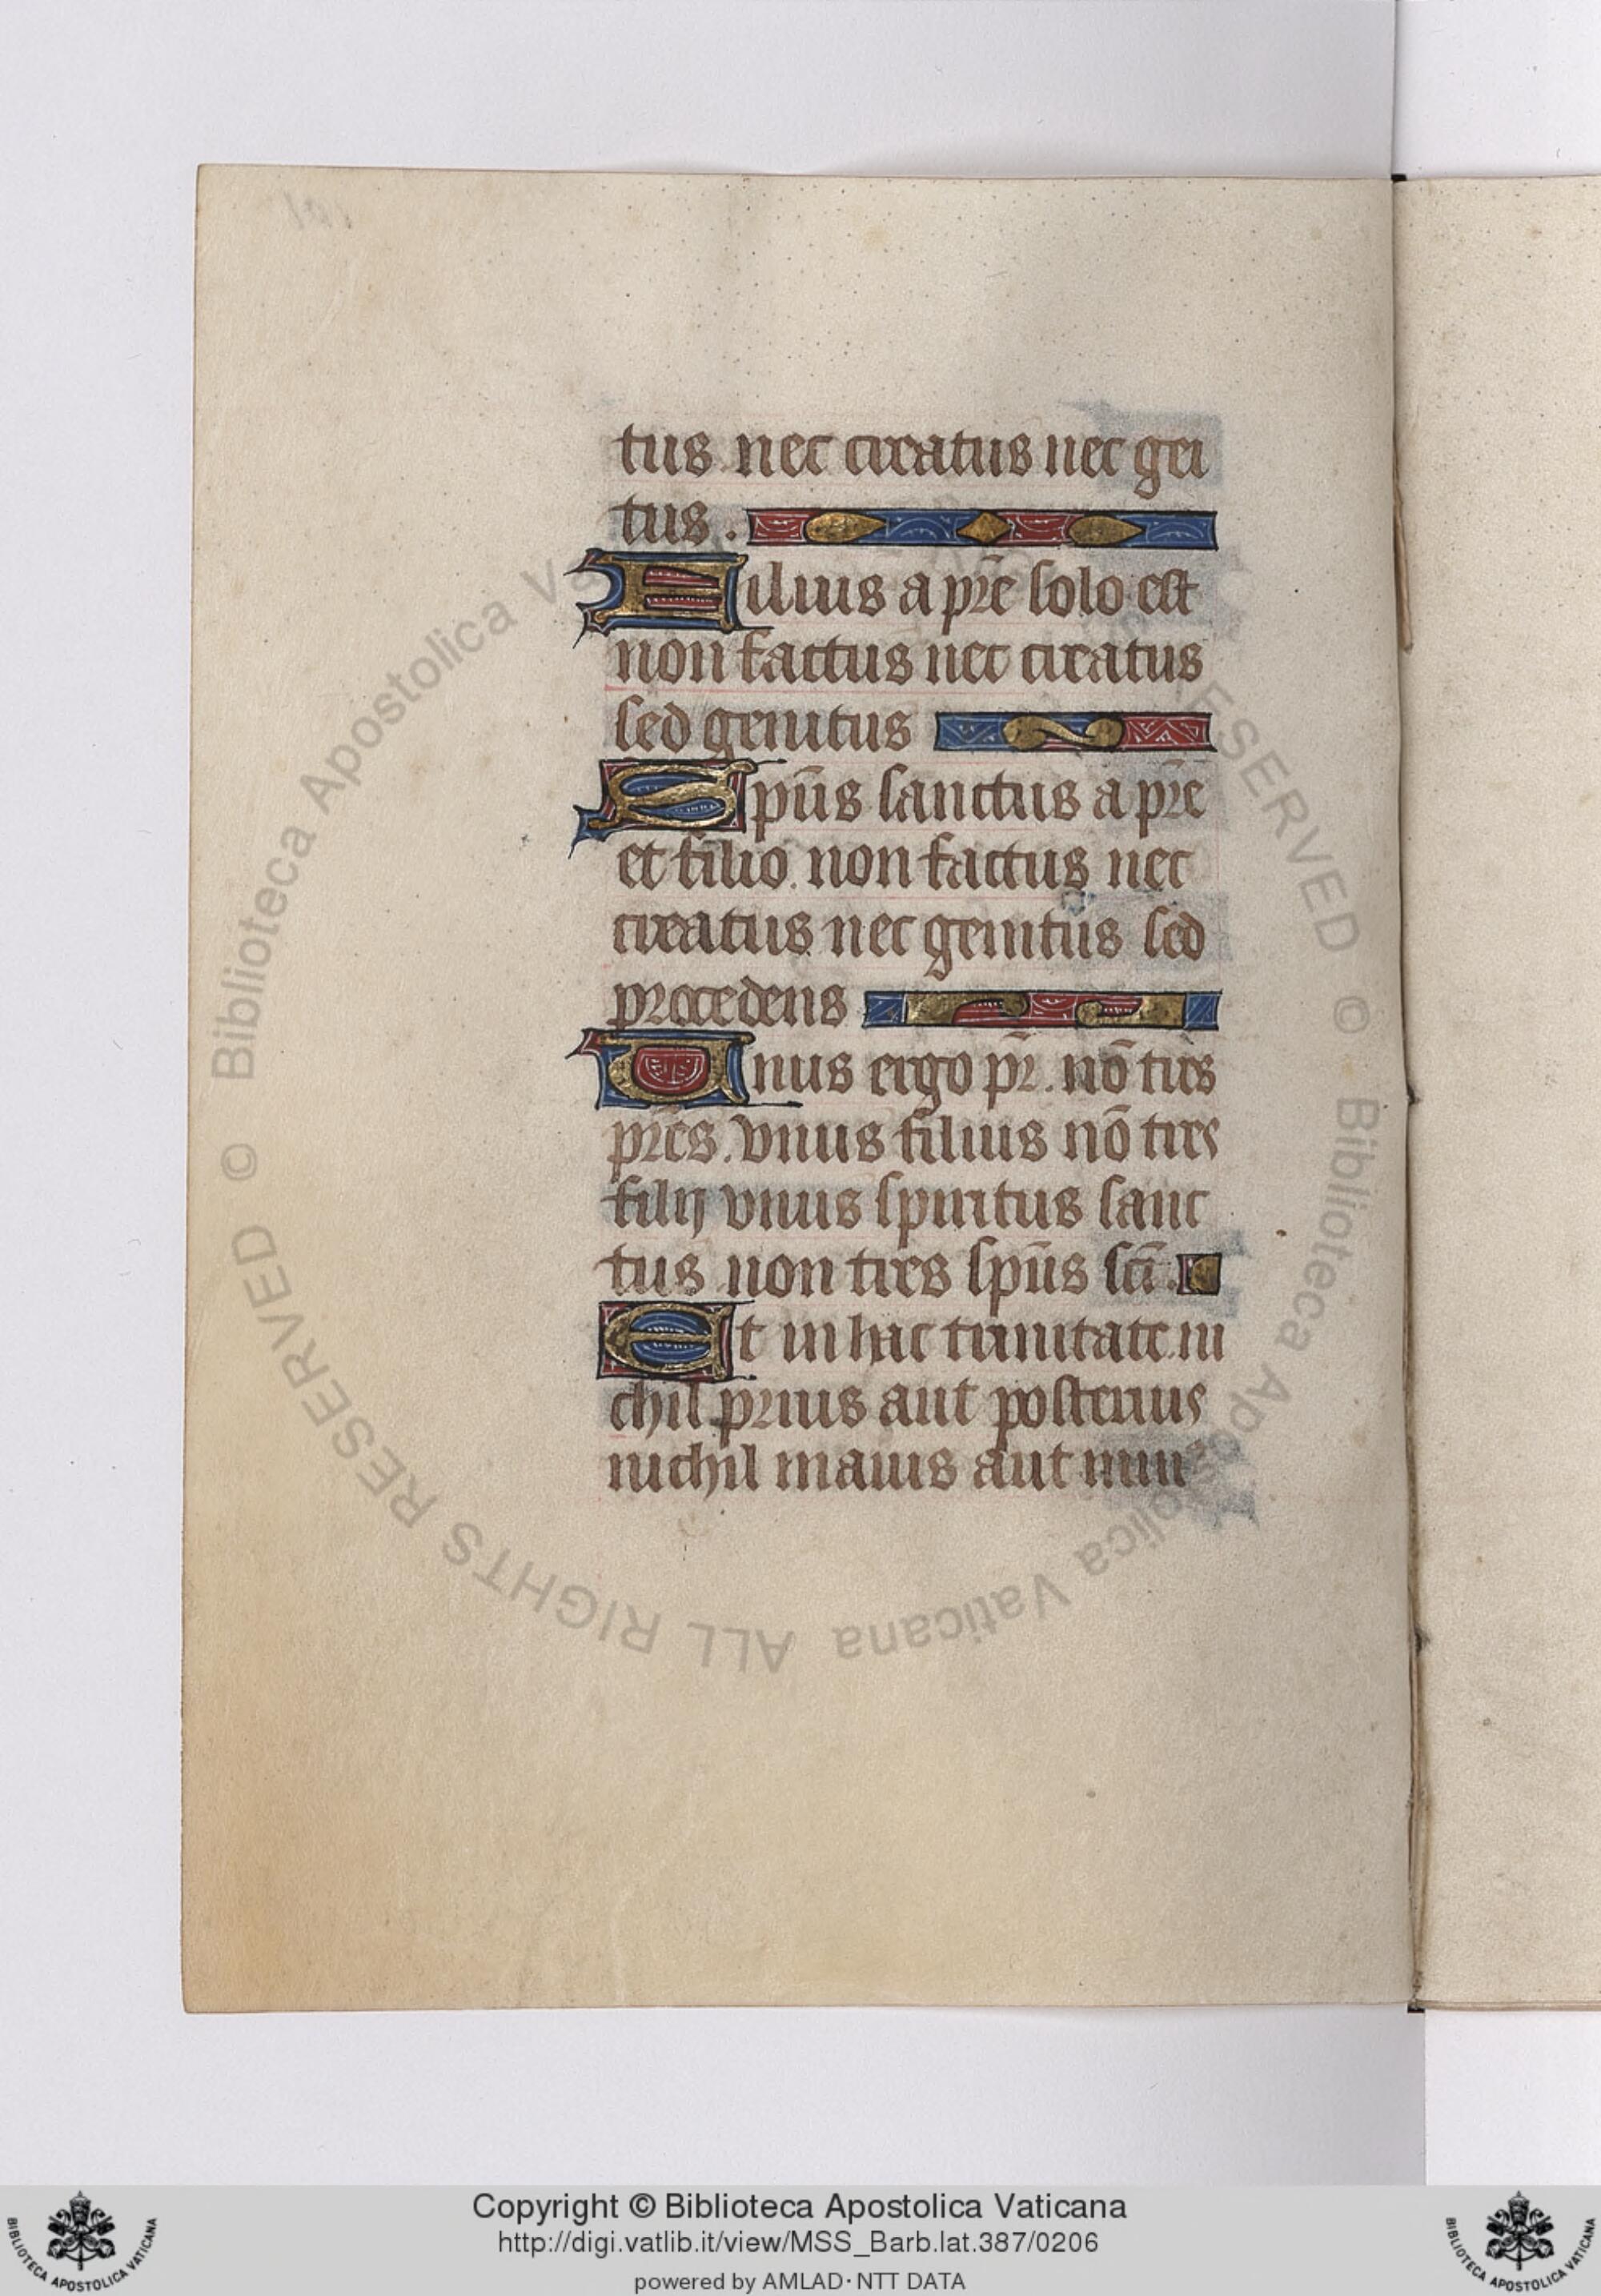 tus nec creatus nec geni
tus.
Filius a p̄re solo est
non factus nec creatus
sed genitus
Sp̄us sanctus a p̄re
et filio. non factus nec
creatus nec genitus sed
procedens
Unus ergo pr̄. nō tres
pr̄es. vnus filius nō tres
filij vnus spiritus sanc
tus non tres sp̄us sc̄i.
Et in hac trinitate. ni
chil prius aut posterius
nichil maius aut minus
© Biblioteca Apostolica Vaticana ALL RIGHTS RESERVED © Biblioteca Apostolica Vaticana ALL RIGHTS RESERVED
Copyright © Biblioteca Apostolica Vaticana
http://digi.vatlib.it/view/MSS_Barb.lat.387/0206
powered by AMLAD·NTT DATA
BIBLIOTECA APOSTOLICA VATICANA
BIBLIOTECA APOSTOLICA VATICANA